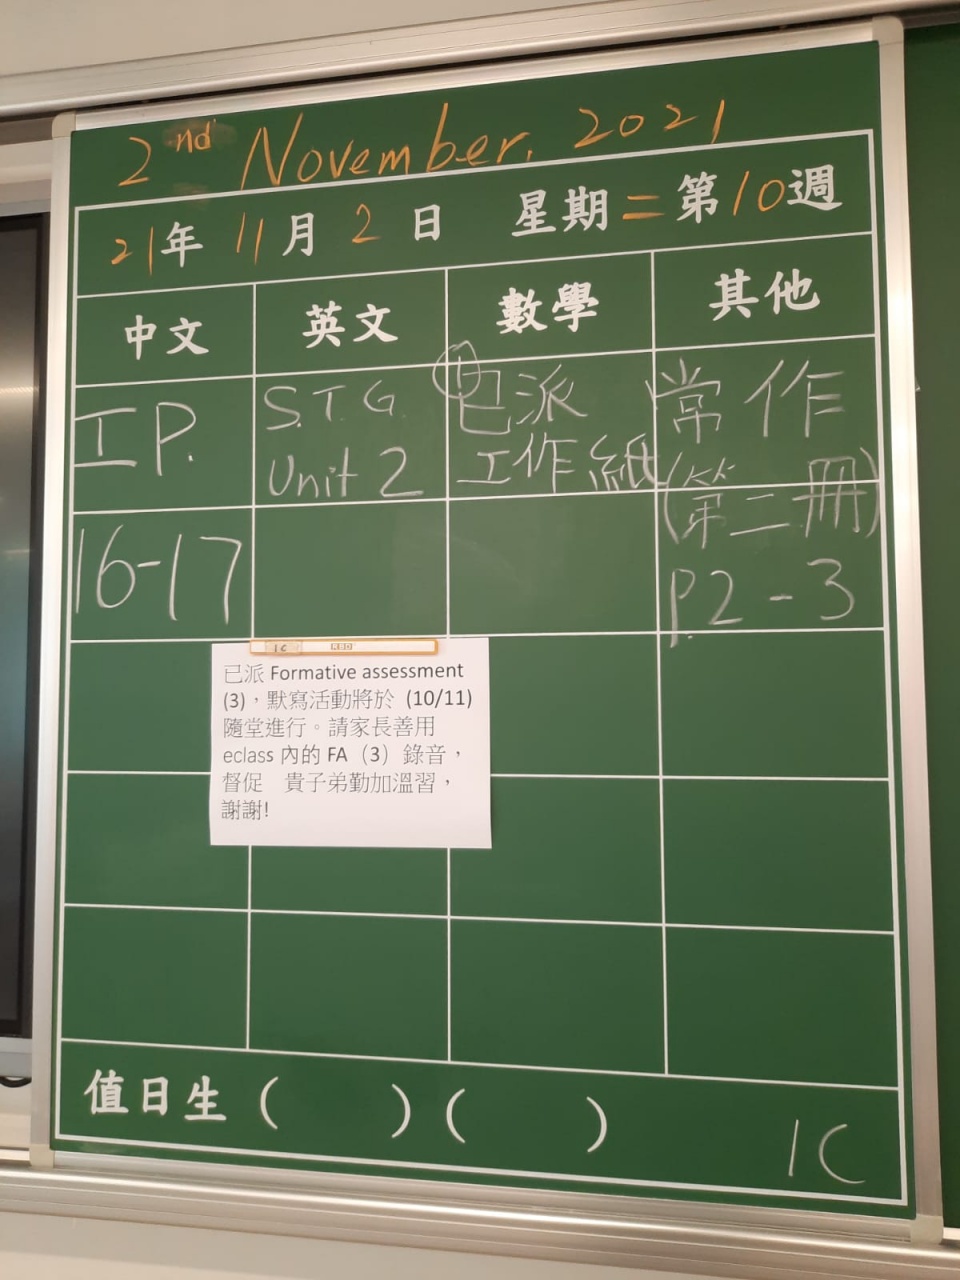 2nd November, 2021
21年 11月 2日 星期二 第10週
中文 英文 數學 其他
工P.
16-17
S.T.G.
Unit 2
已派
工作紙
常作
(第二冊)
P.2-3
1C
已派 Formative assessment
(3)，默寫活動將於 (10/11)
隨堂進行。請家長善用
eclass 內的 FA（3）錄音，
督促 貴子弟勤加溫習，
謝謝!
值日生 ( ) ( )
1C